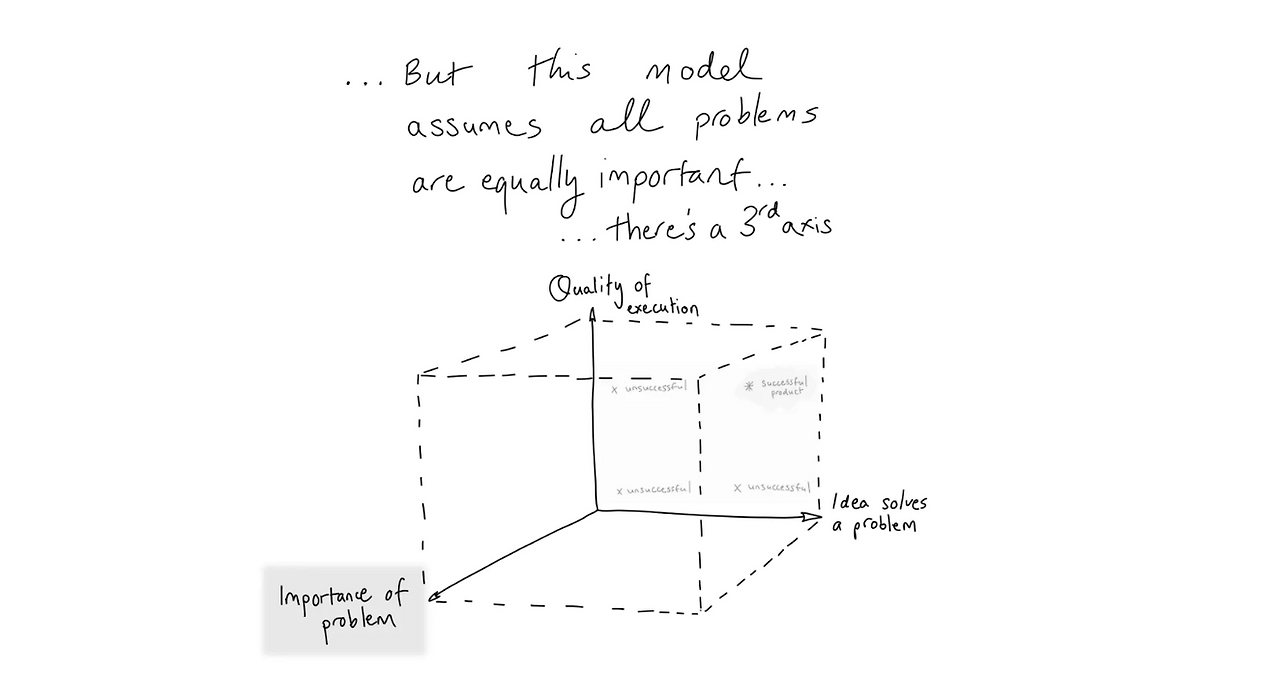 ... But this model
assumes all problems
are equally important...
... there's a 3rd axis
Quality of
execution
x unsuccessful
* successful
product
x unsuccessful
x unsuccessful
Idea solves
a problem
Importance of
problem